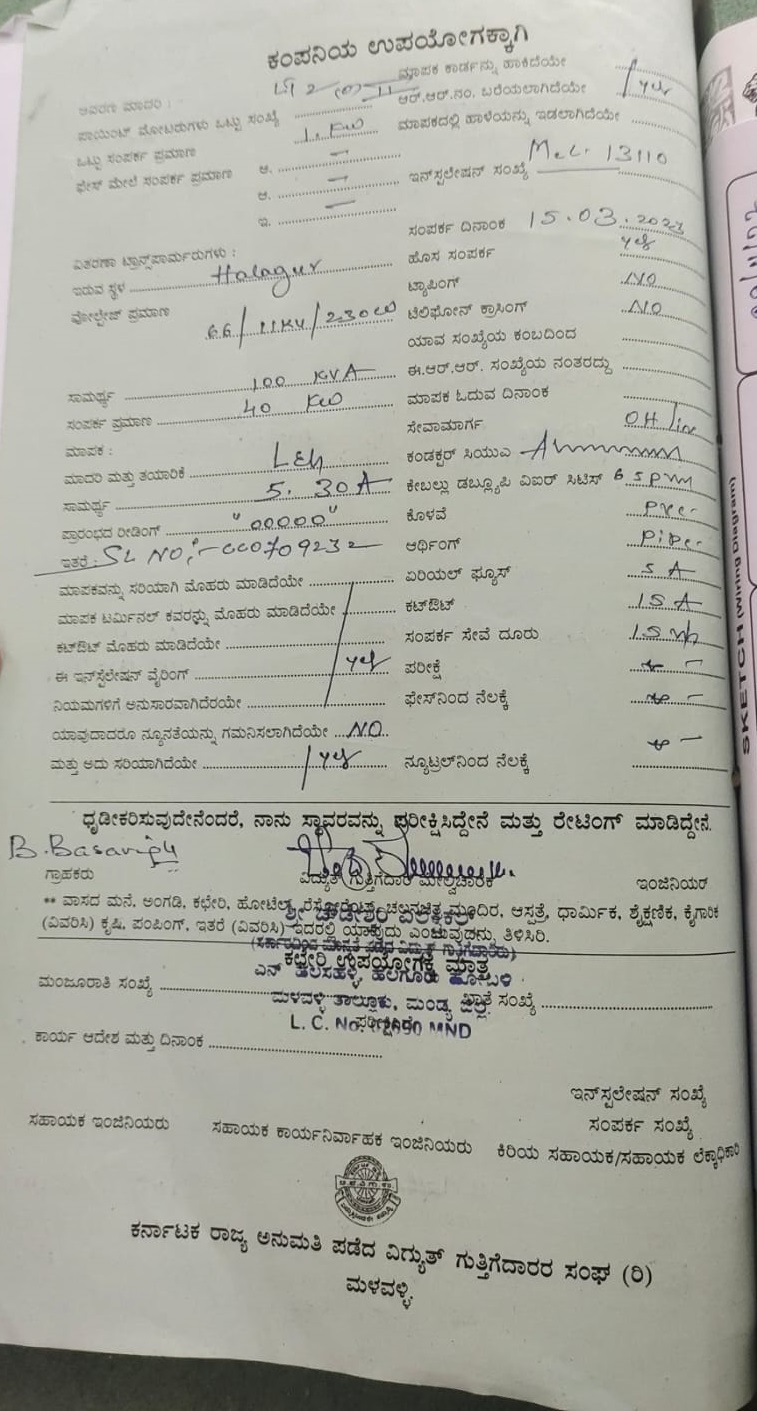 ಕಂಪನಿಯ ಉಪಯೋಗಕ್ಕಾಗಿ
ಮಾಪಕ ಕಾರ್ಡನ್ನು ಹಾಕಿದೆಯೇ
ಆವರಣ ಮಾದರಿ :
ಆರ್.ಆರ್.ನಂ. ಬರೆಯಲಾಗಿದೆಯೇ yes
ಪಾಯಿಂಟ್ ಮೋಟರುಗಳು ಒಟ್ಟು ಸಂಖ್ಯೆ
ಮಾಪಕದಲ್ಲಿ ಹಾಳೆಯನ್ನು ಇಡಲಾಗಿದೆಯೇ
ಒಟ್ಟು ಸಂಪರ್ಕ ಪ್ರಮಾಣ 1. KW
ಫೇಸ್ ಮೇಲೆ ಸಂಪರ್ಕ ಪ್ರಮಾಣ ಅ. –
ಇನ್‌ಸ್ಪಲೇಷನ್ ಸಂಖ್ಯೆ 13110
ಆ. –
ಇ. –
ಸಂಪರ್ಕ ದಿನಾಂಕ 15.03.2023
ವಿತರಣಾ ಟ್ರಾನ್ಸ್‌ಫಾರ್ಮರುಗಳು :
ಹೊಸ ಸಂಪರ್ಕ yes
ಇರುವ ಸ್ಥಳ Halagur
ಟ್ಯಾಪಿಂಗ್ NO
ವೋಲ್ಟೇಜ್ ಪ್ರಮಾಣ 66/11KV/230
ಟೆಲಿಫೋನ್ ಕ್ರಾಸಿಂಗ್ NO
ಯಾವ ಸಂಖ್ಯೆಯ ಕಂಬದಿಂದ
ಸಾಮರ್ಥ್ಯ 100 KVA
ಈ.ಆರ್.ಆರ್. ಸಂಖ್ಯೆಯ ನಂತರದ್ದು
ಸಂಪರ್ಕ ಪ್ರಮಾಣ 40 KW
ಮಾಪಕ ಓದುವ ದಿನಾಂಕ
ಮಾಪಕ :
ಸೇವಾಮಾರ್ಗ OH line
ಮಾದರಿ ಮತ್ತು ತಯಾರಿಕೆ
ಕಂಡಕ್ಟರ್ ಸಿಯುಎ
ಸಾಮರ್ಥ್ಯ 5. 30A
ಕೇಬಲ್ಲು ಡಬ್ಲ್ಯೂಪಿ ವಿಐರ್ ಸಿಟಿಸ್
ಪ್ರಾರಂಭದ ರೀಡಿಂಗ್ "00000"
ಕೊಳವೆ
ಇತರೆ : SL NO:- 000709232
ಅರ್ಥಿಂಗ್ Pipe
ಮಾಪಕವನ್ನು ಸರಿಯಾಗಿ ಮೊಹರು ಮಾಡಿದೆಯೇ
ಏರಿಯಲ್ ಫ್ಯೂಸ್ 5 A
ಮಾಪಕ ಟರ್ಮಿನಲ್ ಕವರನ್ನು ಮೊಹರು ಮಾಡಿದೆಯೇ
ಕಟ್‌ಔಟ್ 15 A
ಕಟ್‌ಔಟ್ ಮೊಹರು ಮಾಡಿದೆಯೇ
ಸಂಪರ್ಕ ಸೇವೆ ದೂರು
ಈ ಇನ್‌ಸ್ಪಲೇಷನ್ ವೈರಿಂಗ್ yes
ಪರೀಕ್ಷೆ
ನಿಯಮಗಳಿಗೆ ಅನುಸಾರವಾಗಿದೆರಯೇ
ಫೇಸ್‌ನಿಂದ ನೆಲಕ್ಕೆ
ಯಾವುದಾದರೂ ನ್ಯೂನತೆಯನ್ನು ಗಮನಿಸಲಾಗಿದೆಯೇ NO
ಮತ್ತು ಅದು ಸರಿಯಾಗಿದೆಯೇ yes
ನ್ಯೂಟ್ರಲ್‌ನಿಂದ ನೆಲಕ್ಕೆ
ಧೃಡೀಕರಿಸುವುದೇನೆಂದರೆ, ನಾನು ಸ್ಥಾವರವನ್ನು ಪರೀಕ್ಷಿಸಿದ್ದೇನೆ ಮತ್ತು ರೇಟಿಂಗ್ ಮಾಡಿದ್ದೇನೆ.
ಗ್ರಾಹಕರು ವಿದ್ಯುತ್ ಗುತ್ತಿಗೆದಾರ ಮೇಲ್ವಿಚಾರಕ ಇಂಜಿನಿಯರ್
** ವಾಸದ ಮನೆ. ಅಂಗಡಿ, ಕಛೇರಿ, ಹೋಟೆಲ್, ರೆಸ್ಟೋರೆಂಟ್, ಚಲನಚಿತ್ರ ಮಂದಿರ, ಆಸ್ಪತ್ರೆ, ಧಾರ್ಮಿಕ, ಶೈಕ್ಷಣಿಕ, ಕೈಗಾರಿಕ
(ವಿವರಿಸಿ) ಕೃಷಿ, ಪಂಪಿಂಗ್, ಇತರೆ (ವಿವರಿಸಿ) ಇದರಲ್ಲಿ ಯಾವುದು ಎಂಬುವುದನ್ನು ತಿಳಿಸಿರಿ.
ಕಛೇರಿ ಉಪಯೋಗಕ್ಕೆ ಮಾತ್ರ
ಮಂಜೂರಾತಿ ಸಂಖ್ಯೆ
ಮಳವಳ್ಳಿ ತಾಲ್ಲೂಕು, ಮಂಡ್ಯ ಜಿಲ್ಲೆ
ಖಾತೆ ಸಂಖ್ಯೆ
L. C. No. MND
ಕಾರ್ಯ ಆದೇಶ ಮತ್ತು ದಿನಾಂಕ
ಇನ್‌ಸ್ಪಲೇಷನ್ ಸಂಖ್ಯೆ
ಸಂಪರ್ಕ ಸಂಖ್ಯೆ
ಸಹಾಯಕ ಇಂಜಿನಿಯರು ಸಹಾಯಕ ಕಾರ್ಯನಿರ್ವಾಹಕ ಇಂಜಿನಿಯರು ಕಿರಿಯ ಸಹಾಯಕ/ಸಹಾಯಕ ಲೆಕ್ಕಾಧಿಕಾರಿ
ಕರ್ನಾಟಕ ರಾಜ್ಯ ಅನುಮತಿ ಪಡೆದ ವಿದ್ಯುತ್ ಗುತ್ತಿಗೆದಾರರ ಸಂಘ (ರಿ)
ಮಳವಳ್ಳಿ.
SKETCH (Wiring Diagram)